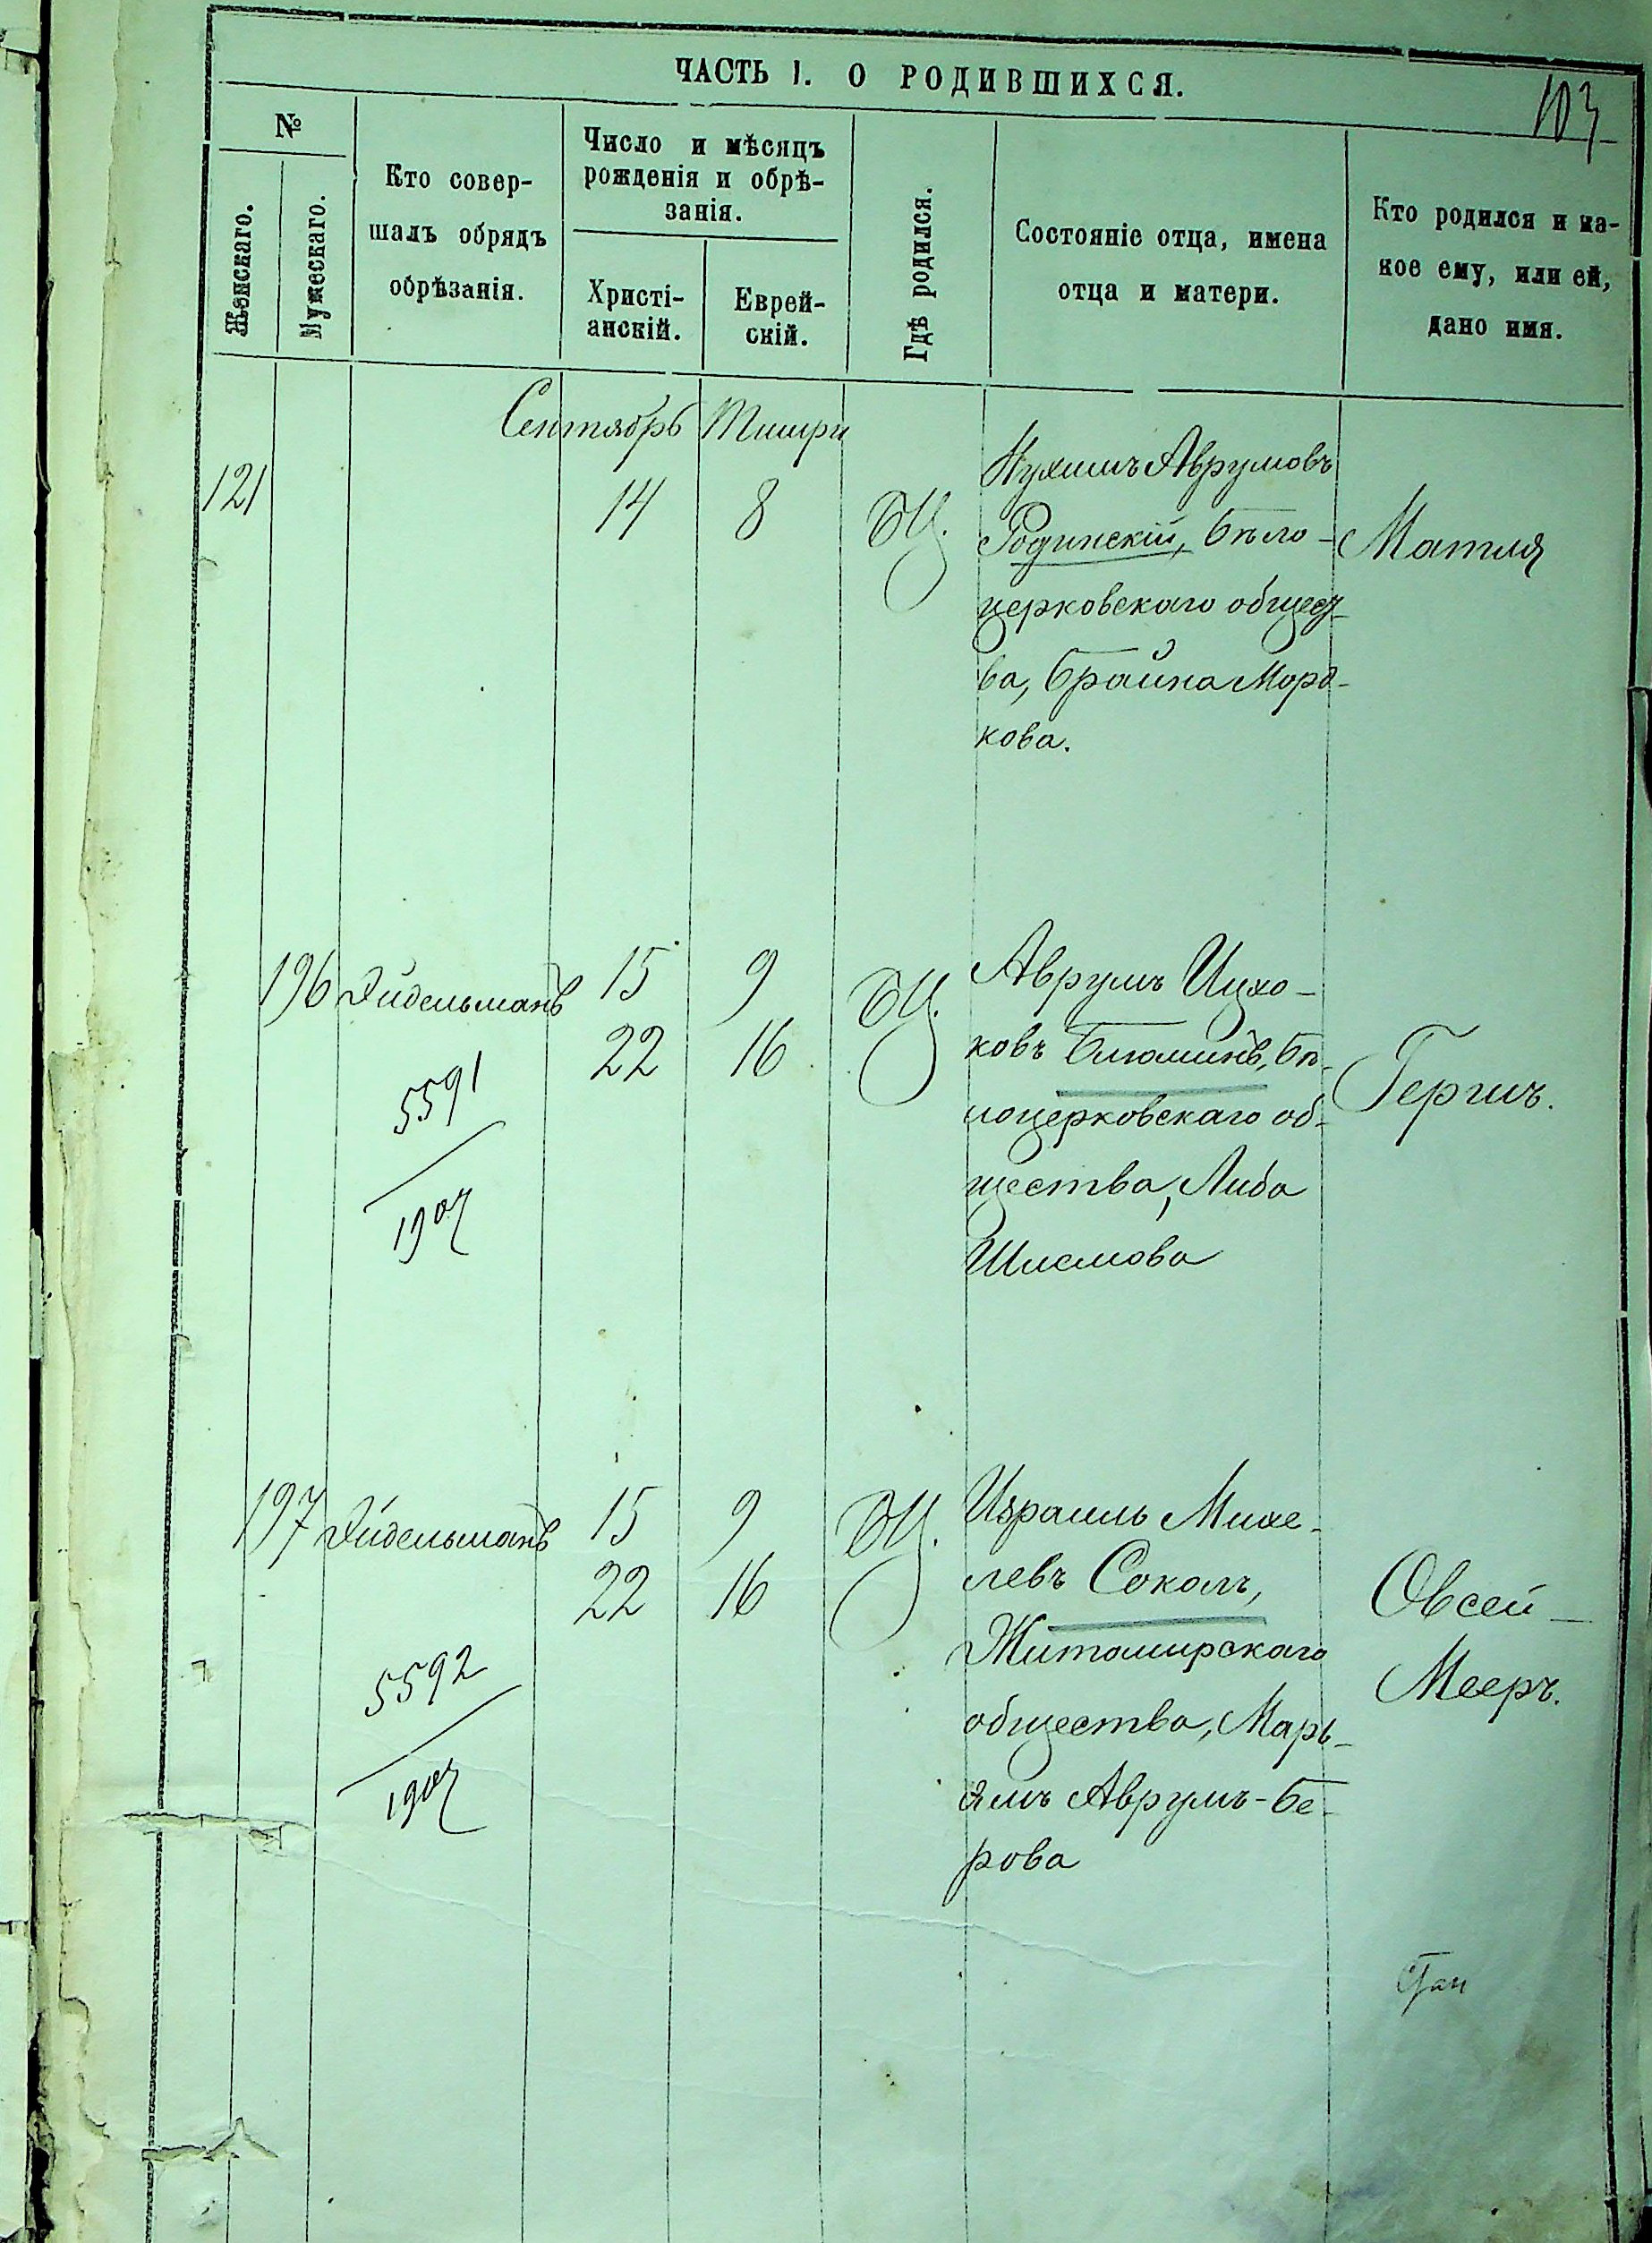 ЧАСТЬ I. О РОДИВШИХСЯ.
103
№
Женскаго.
Мужескаго.
Кто совер-
шалъ обрядъ
обрѣзанія.
Число и мѣсяцъ
рожденія и обрѣ-
занія.
Христі-
анскій.
Еврей-
скій.
Гдѣ родился.
Состояніе отца, имена
отца и матери.
Кто родился и ка-
кое ему, или ей,
дано имя.
Сентябрь Тишри
121
14
8
БЦ.
Нухимъ Аврумовъ
Родинскій, Бѣло-
церковскаго общест-
ва, Брайна Морд-
кова.
Матля
196
Эйдельманъ
15
9
22
16
БЦ.
5591
1907
Аврумъ Ицхо-
ковъ Блюминъ, Бѣ-
лоцерковскаго об-
щества, Либа
Шлемова
Гершъ.
197
Эйдельманъ
15
9
22
16
БЦ.
5592
1907
Израиль Михе-
левъ Соколъ,
Житомирскаго
общества, Марь-
ямъ Аврумъ-Бе-
рова
Овсей-
Мееръ.